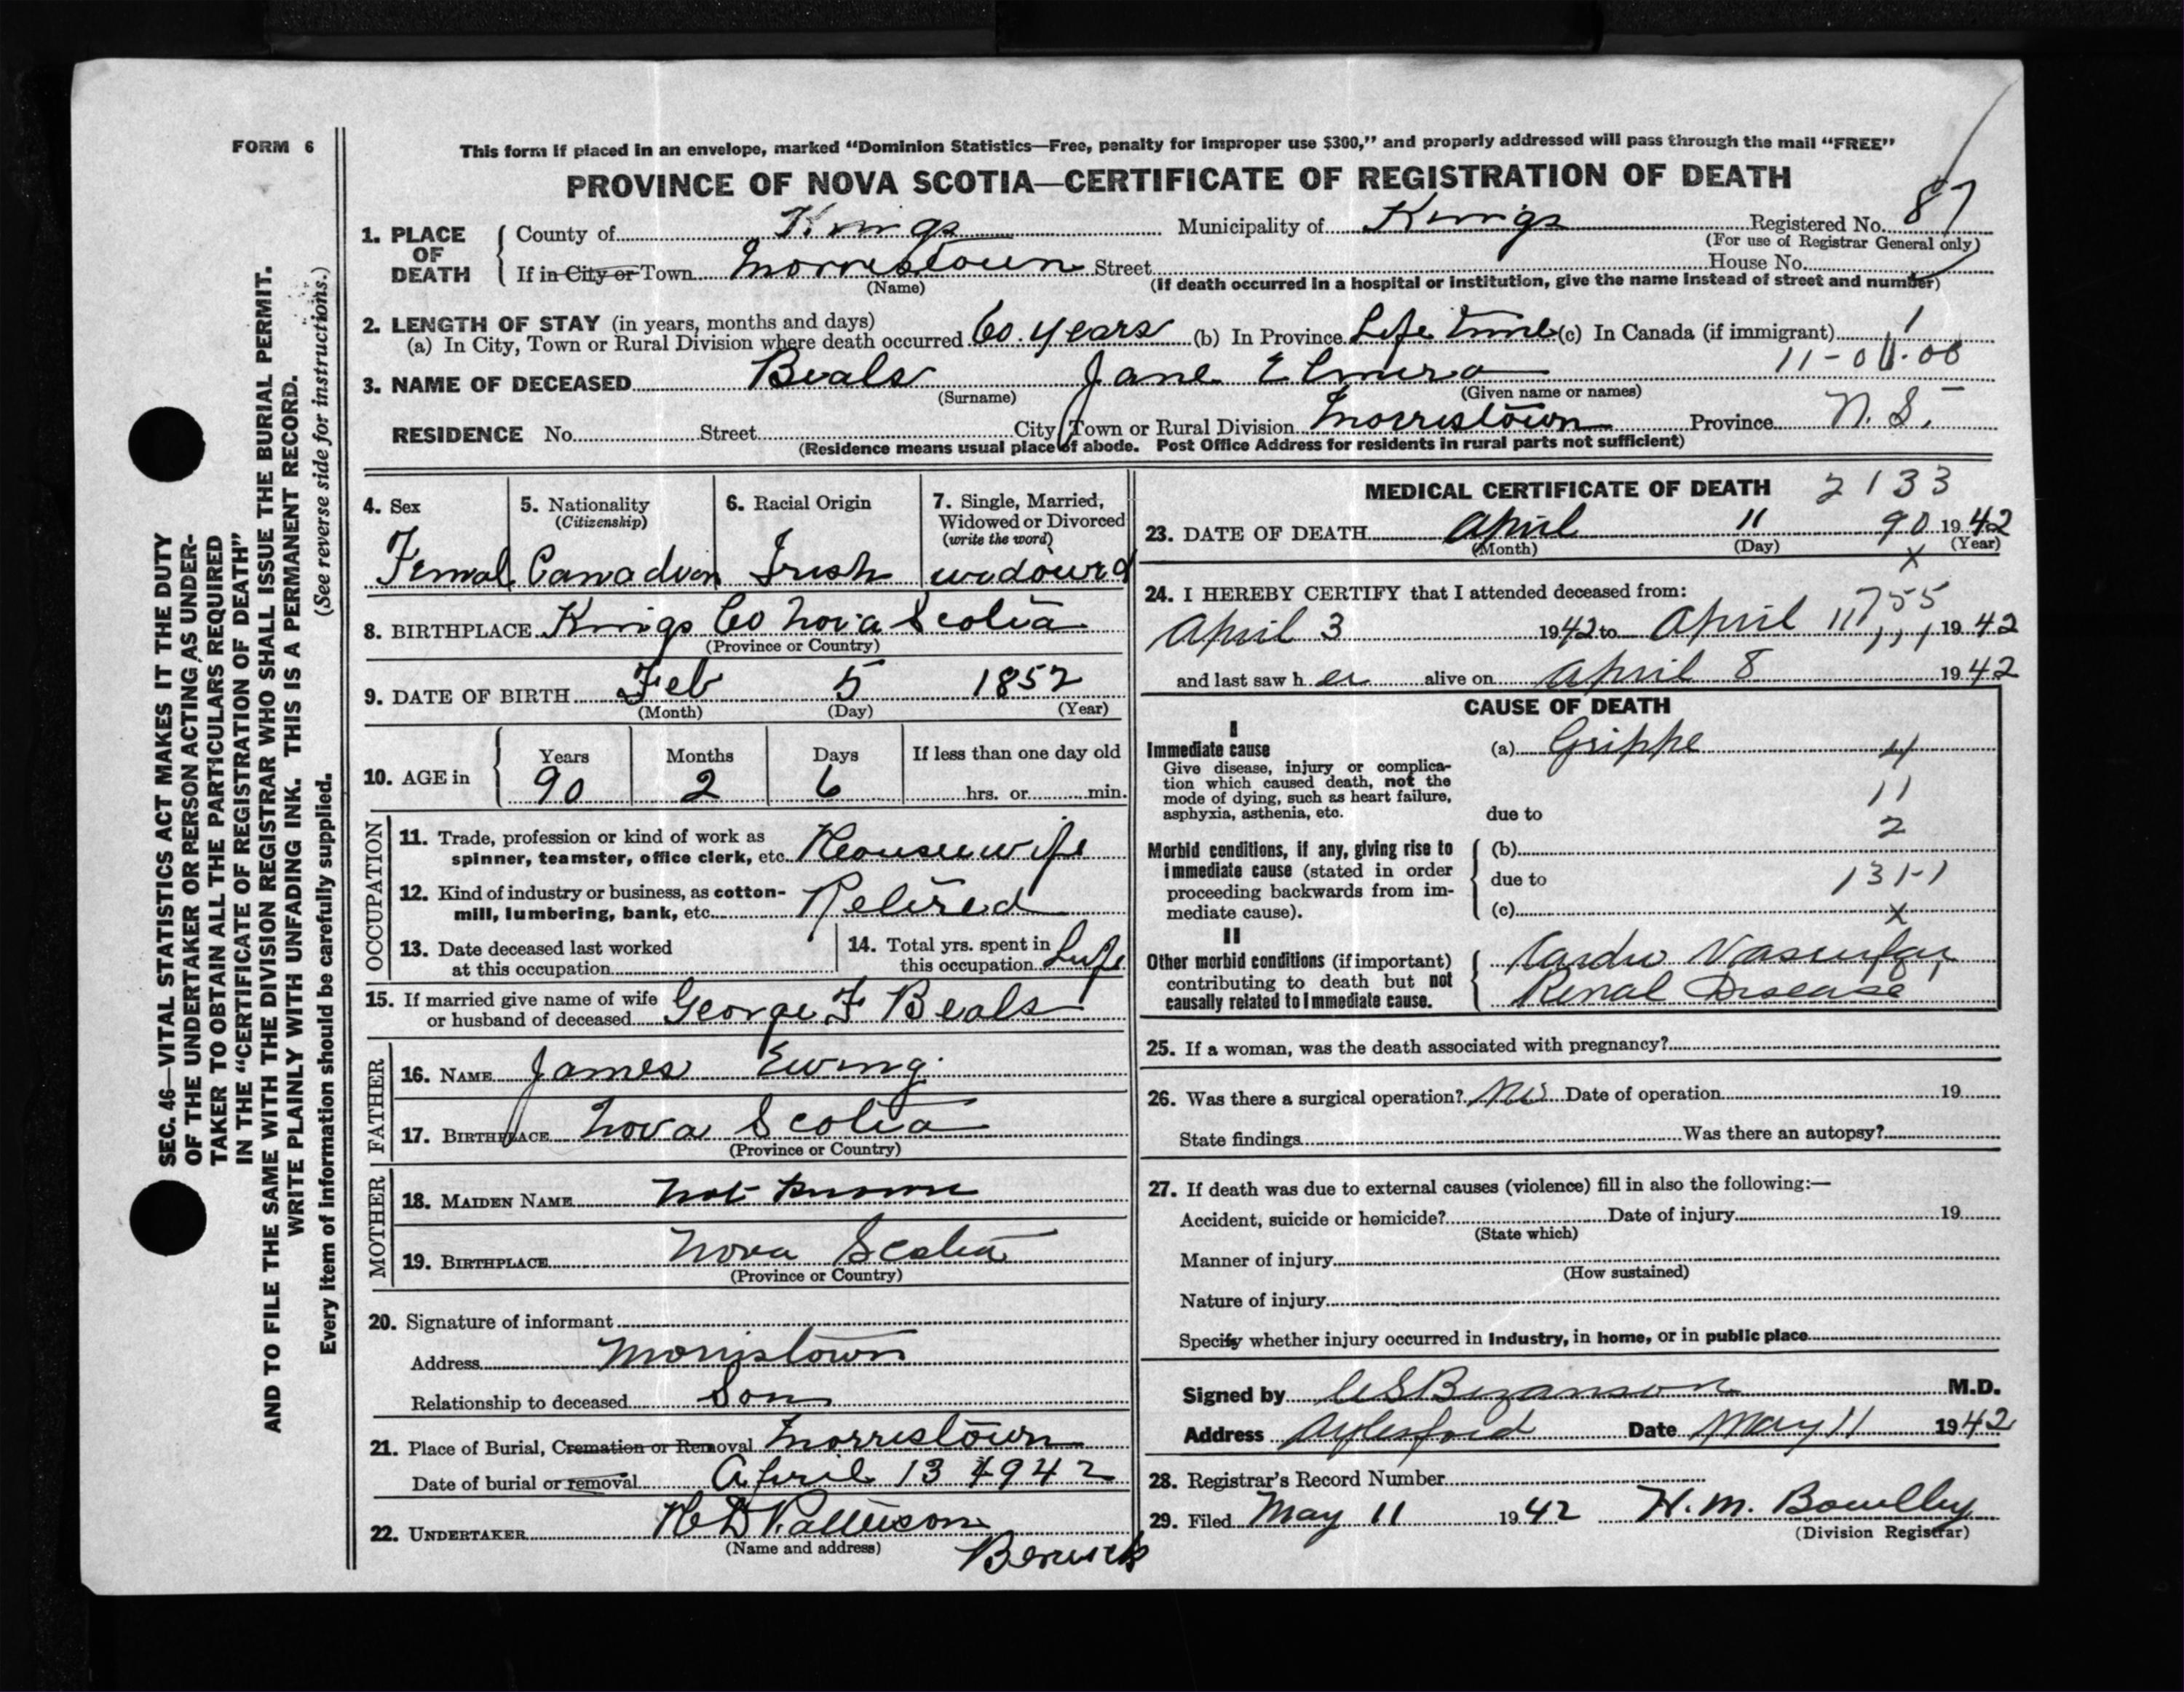 FORM 6
This form if placed in an envelope, marked "Dominion Statistics—Free, penalty for improper use $300," and properly addressed will pass through the mail "FREE"
PROVINCE OF NOVA SCOTIA—CERTIFICATE OF REGISTRATION OF DEATH
1. PLACE OF DEATH
County of Kings Municipality of Kings Registered No. 87
(For use of Registrar General only)
If in City or Town Morristown Street House No.
(Name) (If death occurred in a hospital or institution, give the name instead of street and number)
2. LENGTH OF STAY (in years, months and days)
(a) In City, Town or Rural Division where death occurred 60 years (b) In Province Life time (c) In Canada (if immigrant) 1
3. NAME OF DECEASED Beals Jane Elmira
(Surname) (Given name or names)
RESIDENCE No. Street City, Town or Rural Division Morristown Province N.S.
(Residence means usual place of abode. Post Office Address for residents in rural parts not sufficient)
4. Sex
Femal
5. Nationality
(Citizenship)
Canadian
6. Racial Origin
Irish
7. Single, Married,
Widowed or Divorced
(write the word)
widowed
8. BIRTHPLACE Kings Co Nova Scotia
(Province or Country)
9. DATE OF BIRTH Feb 5 1852
(Month) (Day) (Year)
10. AGE in
Years Months Days If less than one day old
90 2 6 hrs. or min.
OCCUPATION
11. Trade, profession or kind of work as
spinner, teamster, office clerk, etc. Housewife
12. Kind of industry or business, as cotton-
mill, lumbering, bank, etc. Retired
13. Date deceased last worked
at this occupation
14. Total yrs. spent in
this occupation Life
15. If married give name of wife
or husband of deceased George F Beals
FATHER
16. NAME James Ewing
17. BIRTHPLACE Nova Scotia
(Province or Country)
MOTHER
18. MAIDEN NAME not known
19. BIRTHPLACE Nova Scotia
(Province or Country)
20. Signature of informant
Address Morristown
Relationship to deceased Son
21. Place of Burial, Cremation or Removal Morristown
Date of burial or removal April 13 1942
22. UNDERTAKER
(Name and address)
Berwick
MEDICAL CERTIFICATE OF DEATH 2133
23. DATE OF DEATH April 11 90 1942
(Month) (Day) (Year)
x
24. I HEREBY CERTIFY that I attended deceased from:
April 3 1942 to April 11 1942
and last saw her alive on April 8 1942
CAUSE OF DEATH
I
Immediate cause
Give disease, injury or complica-
tion which caused death, not the
mode of dying, such as heart failure,
asphyxia, asthenia, etc.
(a) Grippe 4
11
due to
2
Morbid conditions, if any, giving rise to
immediate cause (stated in order
proceeding backwards from im-
mediate cause).
(b)
due to 131-1
(c) x
II
Other morbid conditions (if important)
contributing to death but not
causally related to immediate cause.
Cardio Vascular
Renal Disease
25. If a woman, was the death associated with pregnancy?
26. Was there a surgical operation? No Date of operation 19
State findings Was there an autopsy?
27. If death was due to external causes (violence) fill in also the following:—
Accident, suicide or homicide? Date of injury 19
(State which)
Manner of injury
(How sustained)
Nature of injury
Specify whether injury occurred in Industry, in home, or in public place
Signed by Bezanson M.D.
Address Aylesford Date May 11 1942
28. Registrar's Record Number
29. Filed May 11 1942 H. M.
(Division Registrar)
SEC. 46—VITAL STATISTICS ACT MAKES IT THE DUTY
OF THE UNDERTAKER OR PERSON ACTING AS UNDER-
TAKER TO OBTAIN ALL THE PARTICULARS REQUIRED
IN THE "CERTIFICATE OF REGISTRATION OF DEATH"
AND TO FILE THE SAME WITH THE DIVISION REGISTRAR WHO SHALL ISSUE THE BURIAL PERMIT.
WRITE PLAINLY WITH UNFADING INK. THIS IS A PERMANENT RECORD.
Every item of information should be carefully supplied. (See reverse side for instructions.)